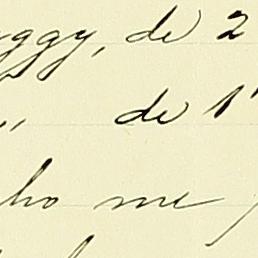 uggy, de 2
" de 1
ho me